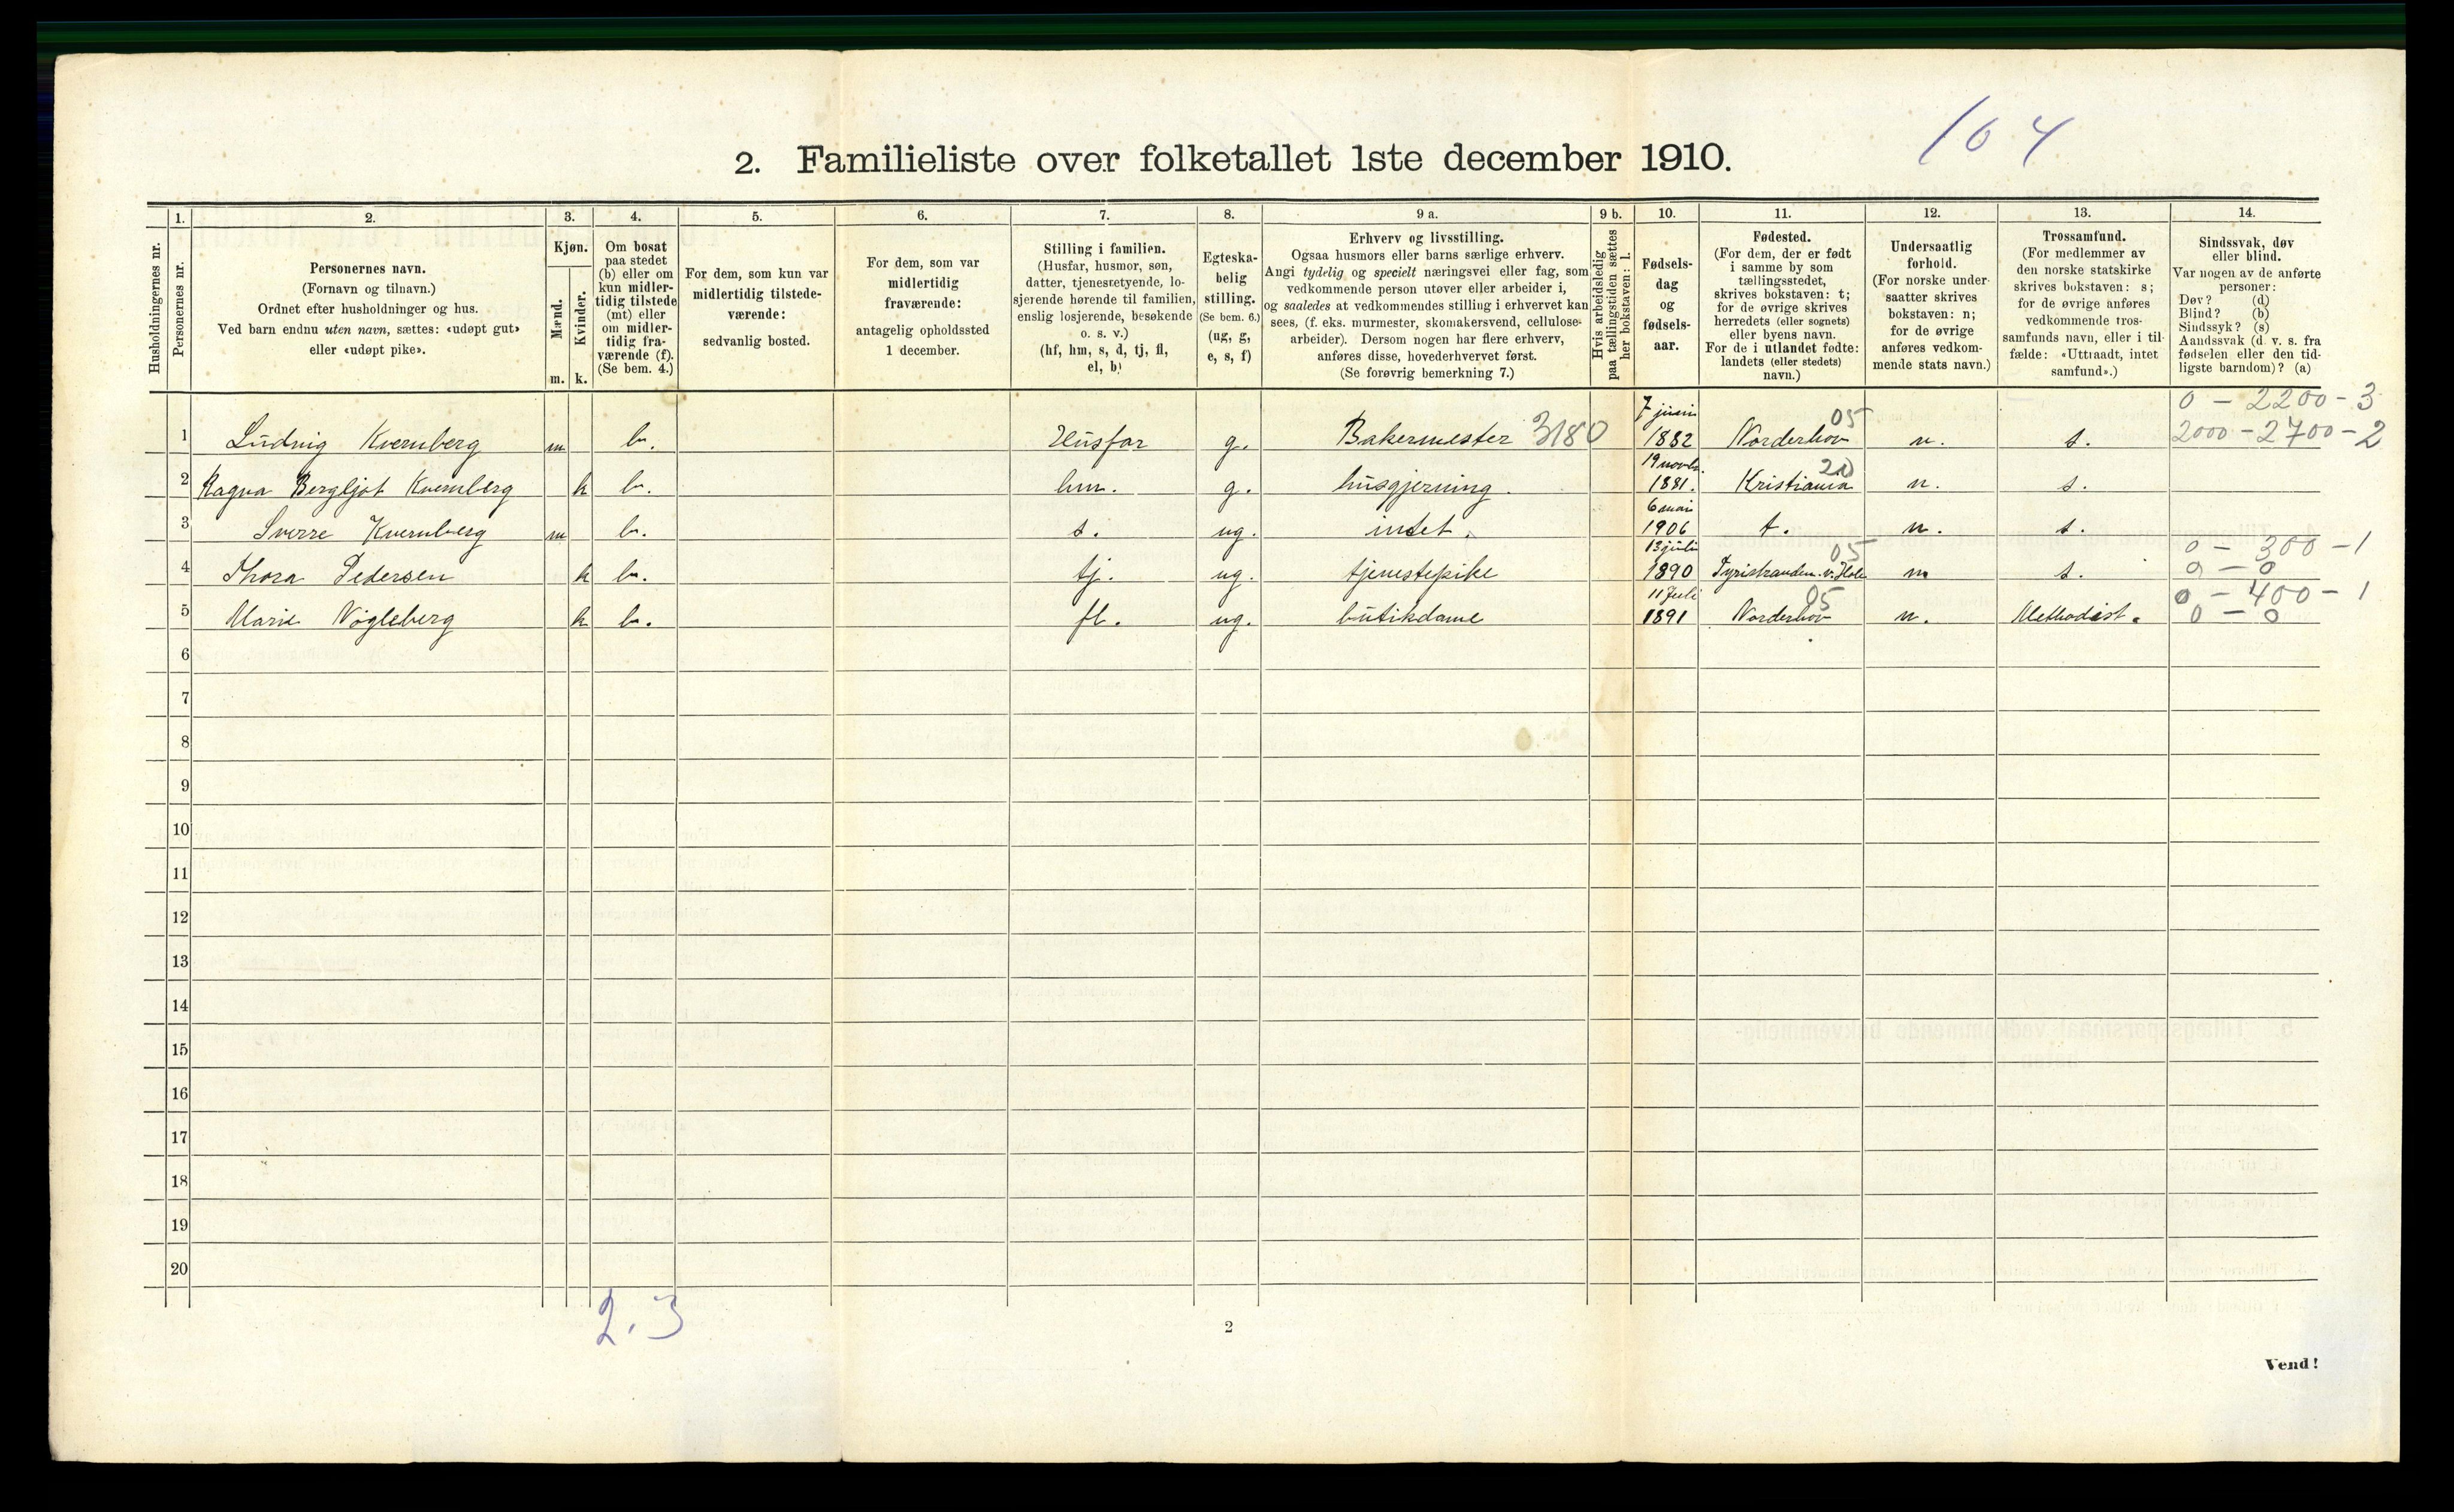 104
2. Familieliste over folketallet 1ste december 1910.
1. 2. 3. 4. 5. 6. 7. 8. 9 a. 9 b. 10. 11. 12. 13. 14.
Husholdningernes nr.
Personernes nr.
Personernes navn.
(Fornavn og tilnavn.)
Ordnet efter husholdninger og hus.
Ved barn endnu uten navn, sættes: «udøpt gut»
eller «udøpt pike».
Kjøn.
Mænd.
Kvinder.
m. k.
Om bosat
paa stedet
(b) eller om
kun midler-
tidig tilstede
(mt) eller
om midler-
tidig fra-
værende (f).
(Se bem. 4.)
For dem, som kun var
midlertidig tilstede-
værende:
sedvanlig bosted.
For dem, som var
midlertidig
fraværende:
antagelig opholdssted
1 december.
Stilling i familien.
(Husfar, husmor, søn,
datter, tjenestetyende, lo-
sjerende hørende til familien,
enslig losjerende, besøkende
o. s. v.)
(hf, hm, s, d, tj, fl,
el, b)
Egteska-
belig
stilling.
(Se bem. 6.)
(ug, g,
e, s, f)
Erhverv og livsstilling.
Ogsaa husmors eller barns særlige erhverv.
Angi tydelig og specielt næringsvei eller fag, som
vedkommende person utøver eller arbeider i,
og saaledes at vedkommendes stilling i erhvervet kan
sees, (f. eks. murmester, skomakersvend, cellulose-
arbeider). Dersom nogen har flere erhverv,
anføres disse, hovederhvervet først.
(Se forøvrig bemerkning 7.)
Hvis arbeidsledig
paa tællingstiden sættes
her bokstaven: l.
Fødsels-
dag
og
fødsels-
aar.
Fødested.
(For dem, der er født
i samme by som
tællingsstedet,
skrives bokstaven: t;
for de øvrige skrives
herredets (eller sognets)
eller byens navn.
For de i utlandet fødte:
landets (eller stedets)
navn.)
Undersaatlig
forhold.
(For norske under-
saatter skrives
bokstaven: n;
for de øvrige
anføres vedkom-
mende stats navn.)
Trossamfund.
(For medlemmer av
den norske statskirke
skrives bokstaven: s;
for de øvrige anføres
vedkommende tros-
samfunds navn, eller i til-
fælde: «Uttraadt, intet
samfund».)
Sindssvak, døv
eller blind.
Var nogen av de anførte
personer:
Døv? (d)
Blind? (b)
Sindssyk? (s)
Aandssvak (d. v. s. fra
fødselen eller den tid-
ligste barndom)? (a)
7 juni 05 0 - 2200 - 3
1 Ludvig Kvernberg m b. Husfar g. Bakermester 3180 1882 Norderhov n. s. 2000 - 2700 - 2
19 novbr. 20
2 Ragna Bergljot Kvernberg k b. hm. g. husgjerning. 1881. Kristiania n. s.
6 mai
3 Sverre Kvernberg m b. s. ug. intet. 1906 t. n. s.
13 juli 05 0 - 300 - 1
4 Thora Pedersen k b. tj. ug. tjenestepike 1890 Tyristranden v. Hole n s. 0 - 0
11 Juli 05 0 - 400 - 1
5 Marie Nögleberg k b. fl. ug. butikdame 1891 Norderhov n. Methodist. 0 - 0
6
7
8
9
10
11
12
13
14
15
16
17
18
19
20
2. 3
2
Vend!